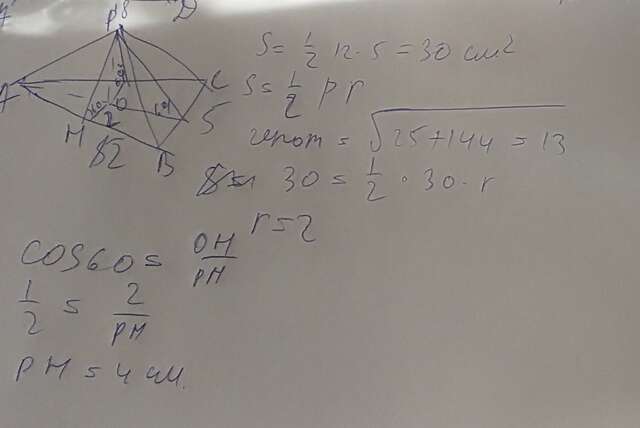 P
D
A
C
60
60
O
60
2
5
M
12
B
S = 1/2 12 · 5 = 30 см²
S = 1/2 p r
гипот = √25+144 = 13
30 = 1/2 · 30 · r
r = 2
cos60 = OH/PH
1/2 = 2/PH
PH = 4 см.